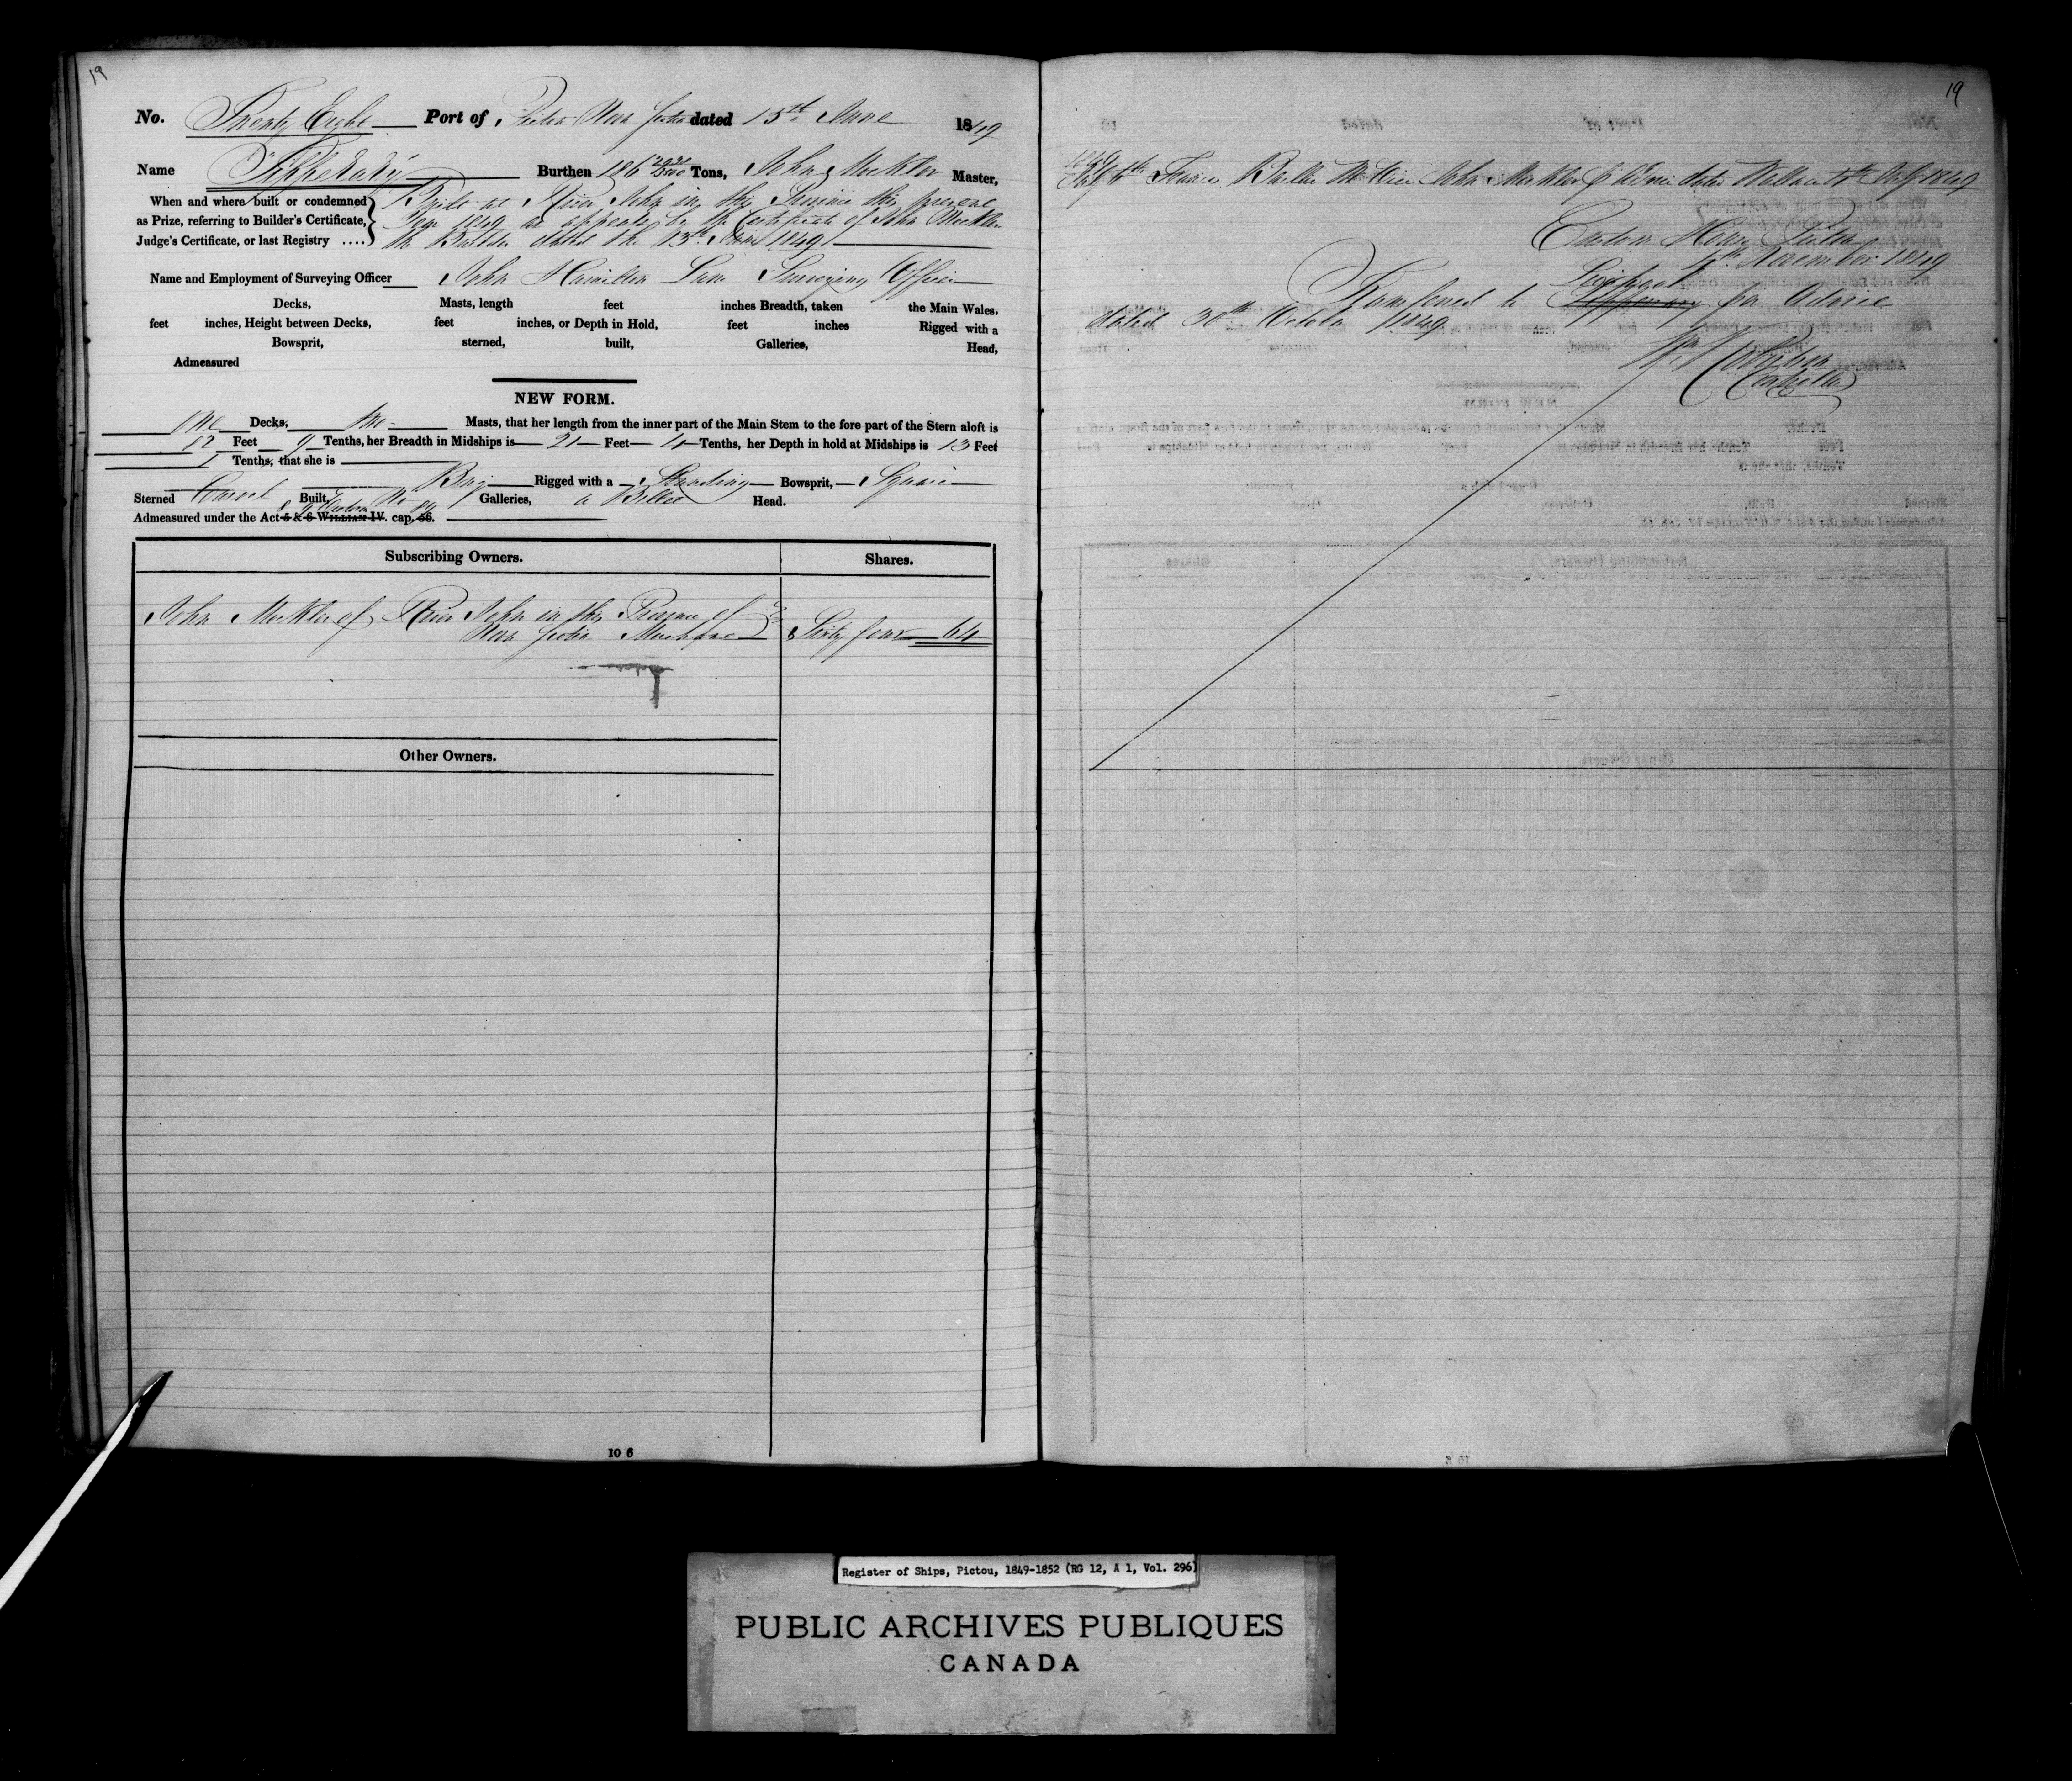 19
No. Twenty Eight Port of Pictou Nova Scotia dated 15th June 1849
Name "Tipperary" Burthen 186 Tons, John Mockler Master,
When and where built or condemned Built at River John in this Province this present
as Prize, referring to Builder's Certificate, Year 1849 as appears by the Certificate of John Mockler
Judge's Certificate, or last Registry .... the Builder dated the 13th June 1849
Name and Employment of Surveying Officer John Hamilton Lane Surveying Officer
Decks, Masts, length feet inches Breadth, taken the Main Wales,
feet inches, Height between Decks, feet inches, or Depth in Hold, feet inches Rigged with a
Bowsprit, sterned, built, Galleries, Head,
Admeasured
NEW FORM.
One Decks, two Masts, that her length from the inner part of the Main Stem to the fore part of the Stern aloft is
Feet 9 Tenths, her Breadth in Midships is 21 Feet 10 Tenths, her Depth in hold at Midships is 13 Feet
1 Tenths, that she is
Brig Rigged with a Standing Bowsprit, Square
Sterned Carvel Built, No Galleries, a Billet Head.
8 & 9 Victoria 89
Admeasured under the Act 5 & 6 WILLIAM IV. cap. 56.
Subscribing Owners. Shares.
John Mockler of River John in this Province of
Nova Scotia Merchant Sixty four 64
Other Owners.
10 6
19
1849
July 6th Francis Master Vice John Mockler dated 6th July 1849
Custom House Pictou
November 1849
Liverpool
Transferred to Tipperary per Advice
dated 30th October 1849
Controller
Register of Ships, Pictou, 1849-1852 (RG 12, A 1, Vol. 296)
PUBLIC ARCHIVES PUBLIQUES
CANADA